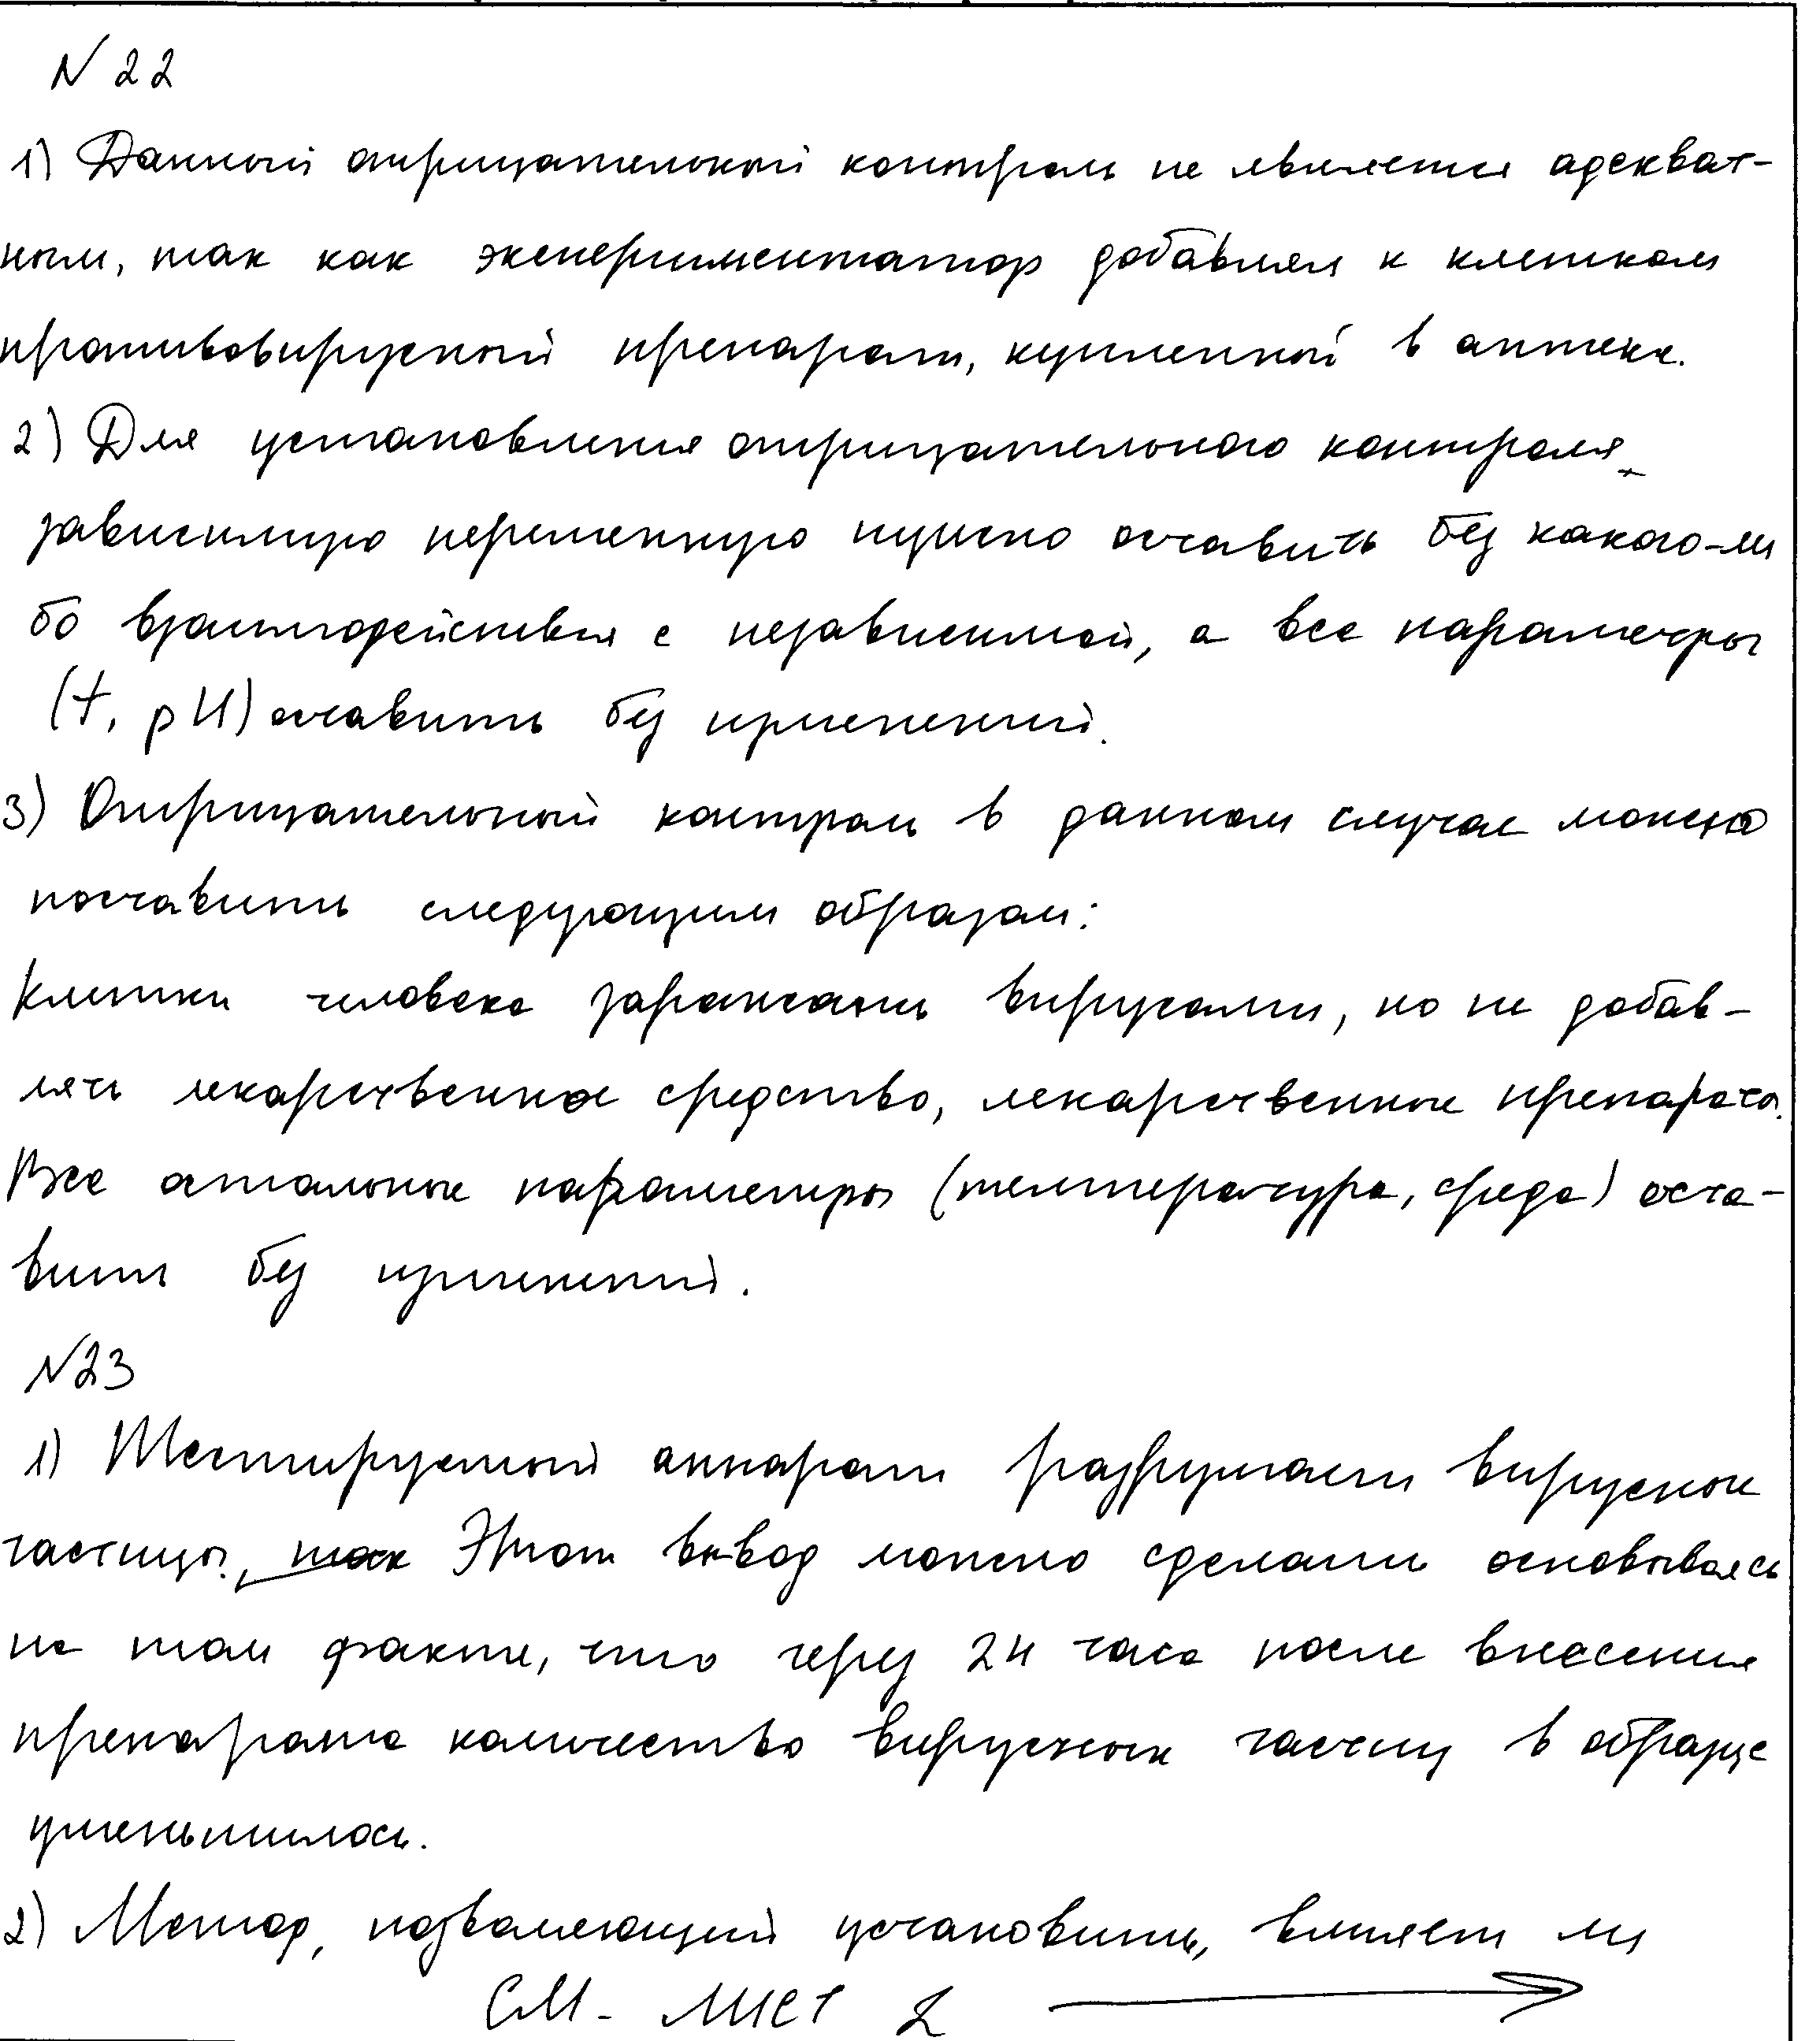 N 22
1) Данный отрицательный контроль не является адекват-
ным, так как экспериментатор добавлял к клеткам
противовирусный препарат, купленный в аптеке.
2) Для установления отрицательного контроля
зависимую переменную нужно оставить без какого-ли
бо взаимодействия с независимой, а все параметры
(t, pH) оставить без изменений.
3) Отрицательный контроль в данном случае можно
поставить следующим образом:
Клетки человека заражать вирусами, но не добав-
лять лекарственное средство, лекарственные препараты.
Все остальные параметры (температура, среда) оста-
вить без изменений.
N23
1) Тестируемый аппарат разрушает вирусные
частицы., так Этот вывод можно сделать основываясь
на том факте, что через 24 часа после внесения
препарата количество вирусных частиц в образце
уменьшилось.
2) Метод, позволяющий установить, влияет ли
СМ. ЛИСТ 2